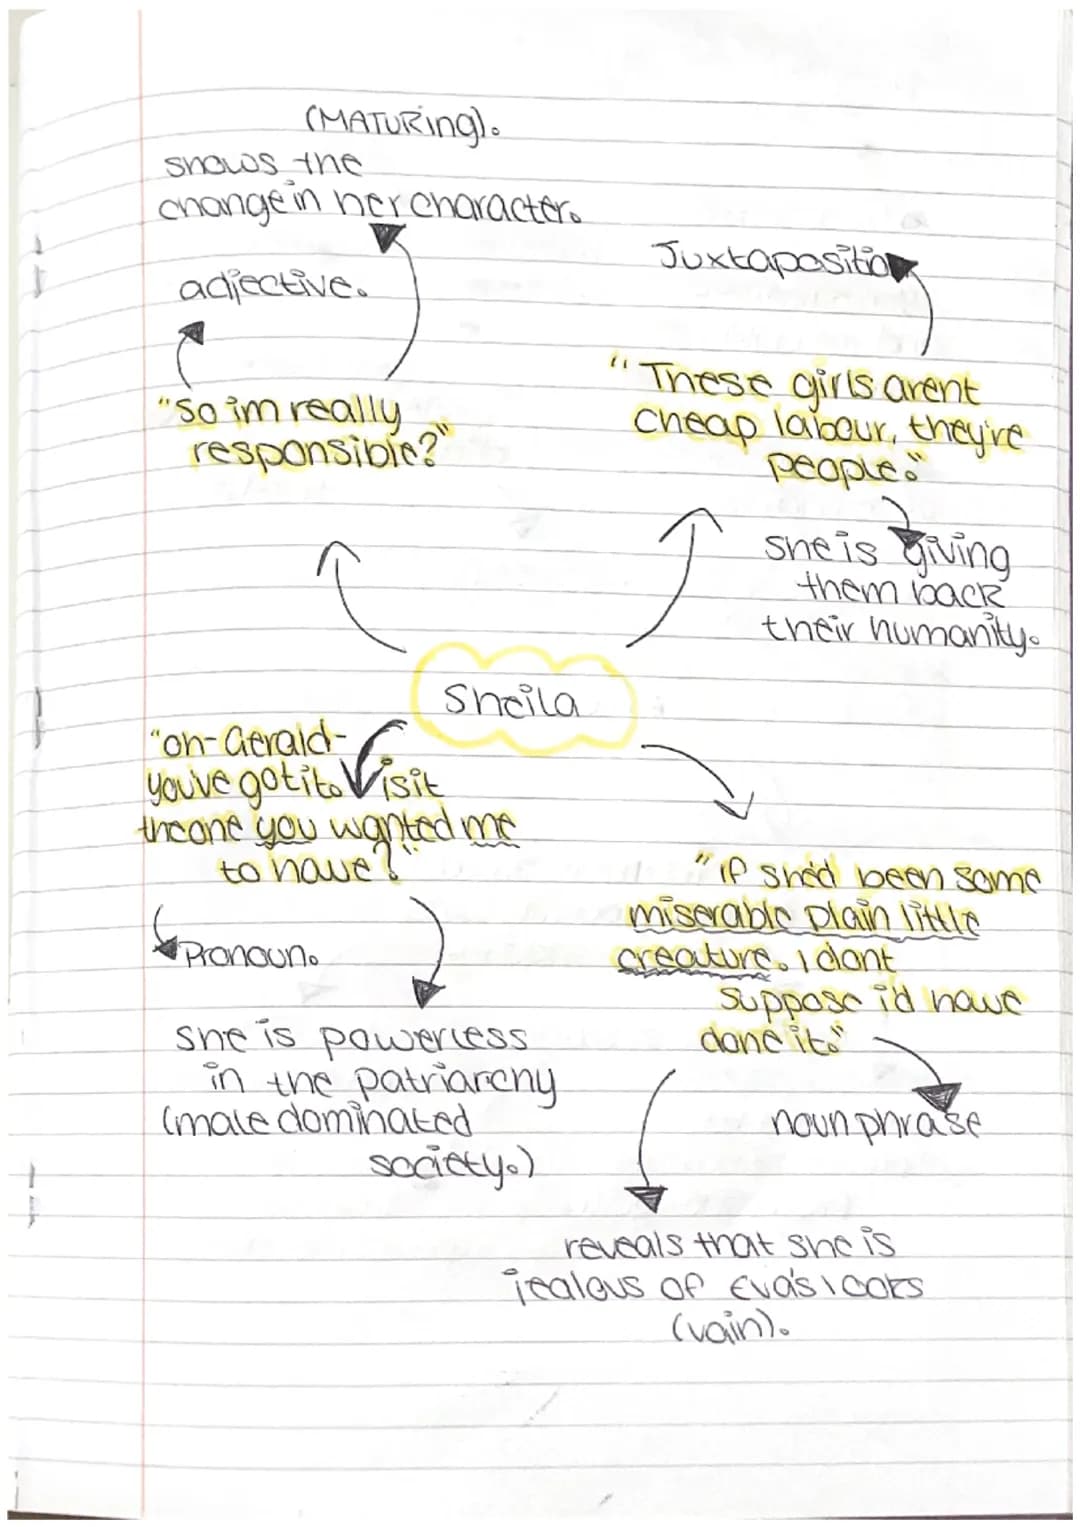 (MATURing).
shows the
change in her character.
adjective.
"So im really
responsible?"
Juxtaposition
"These girls arent
cheap labour, they're
people."
she is giving
them back
their humanity.
Sheila
"oh- Gerald-
you've got it. is it
the one you wanted me
to have?"
Pronoun.
she is powerless
in the patriarchy
(male dominated
society.)
"if she'd been some
miserable plain little
creature. I dont
suppose i'd have
done it."
noun phrase
reveals that she is
jealous of Eva's looks
(vain).